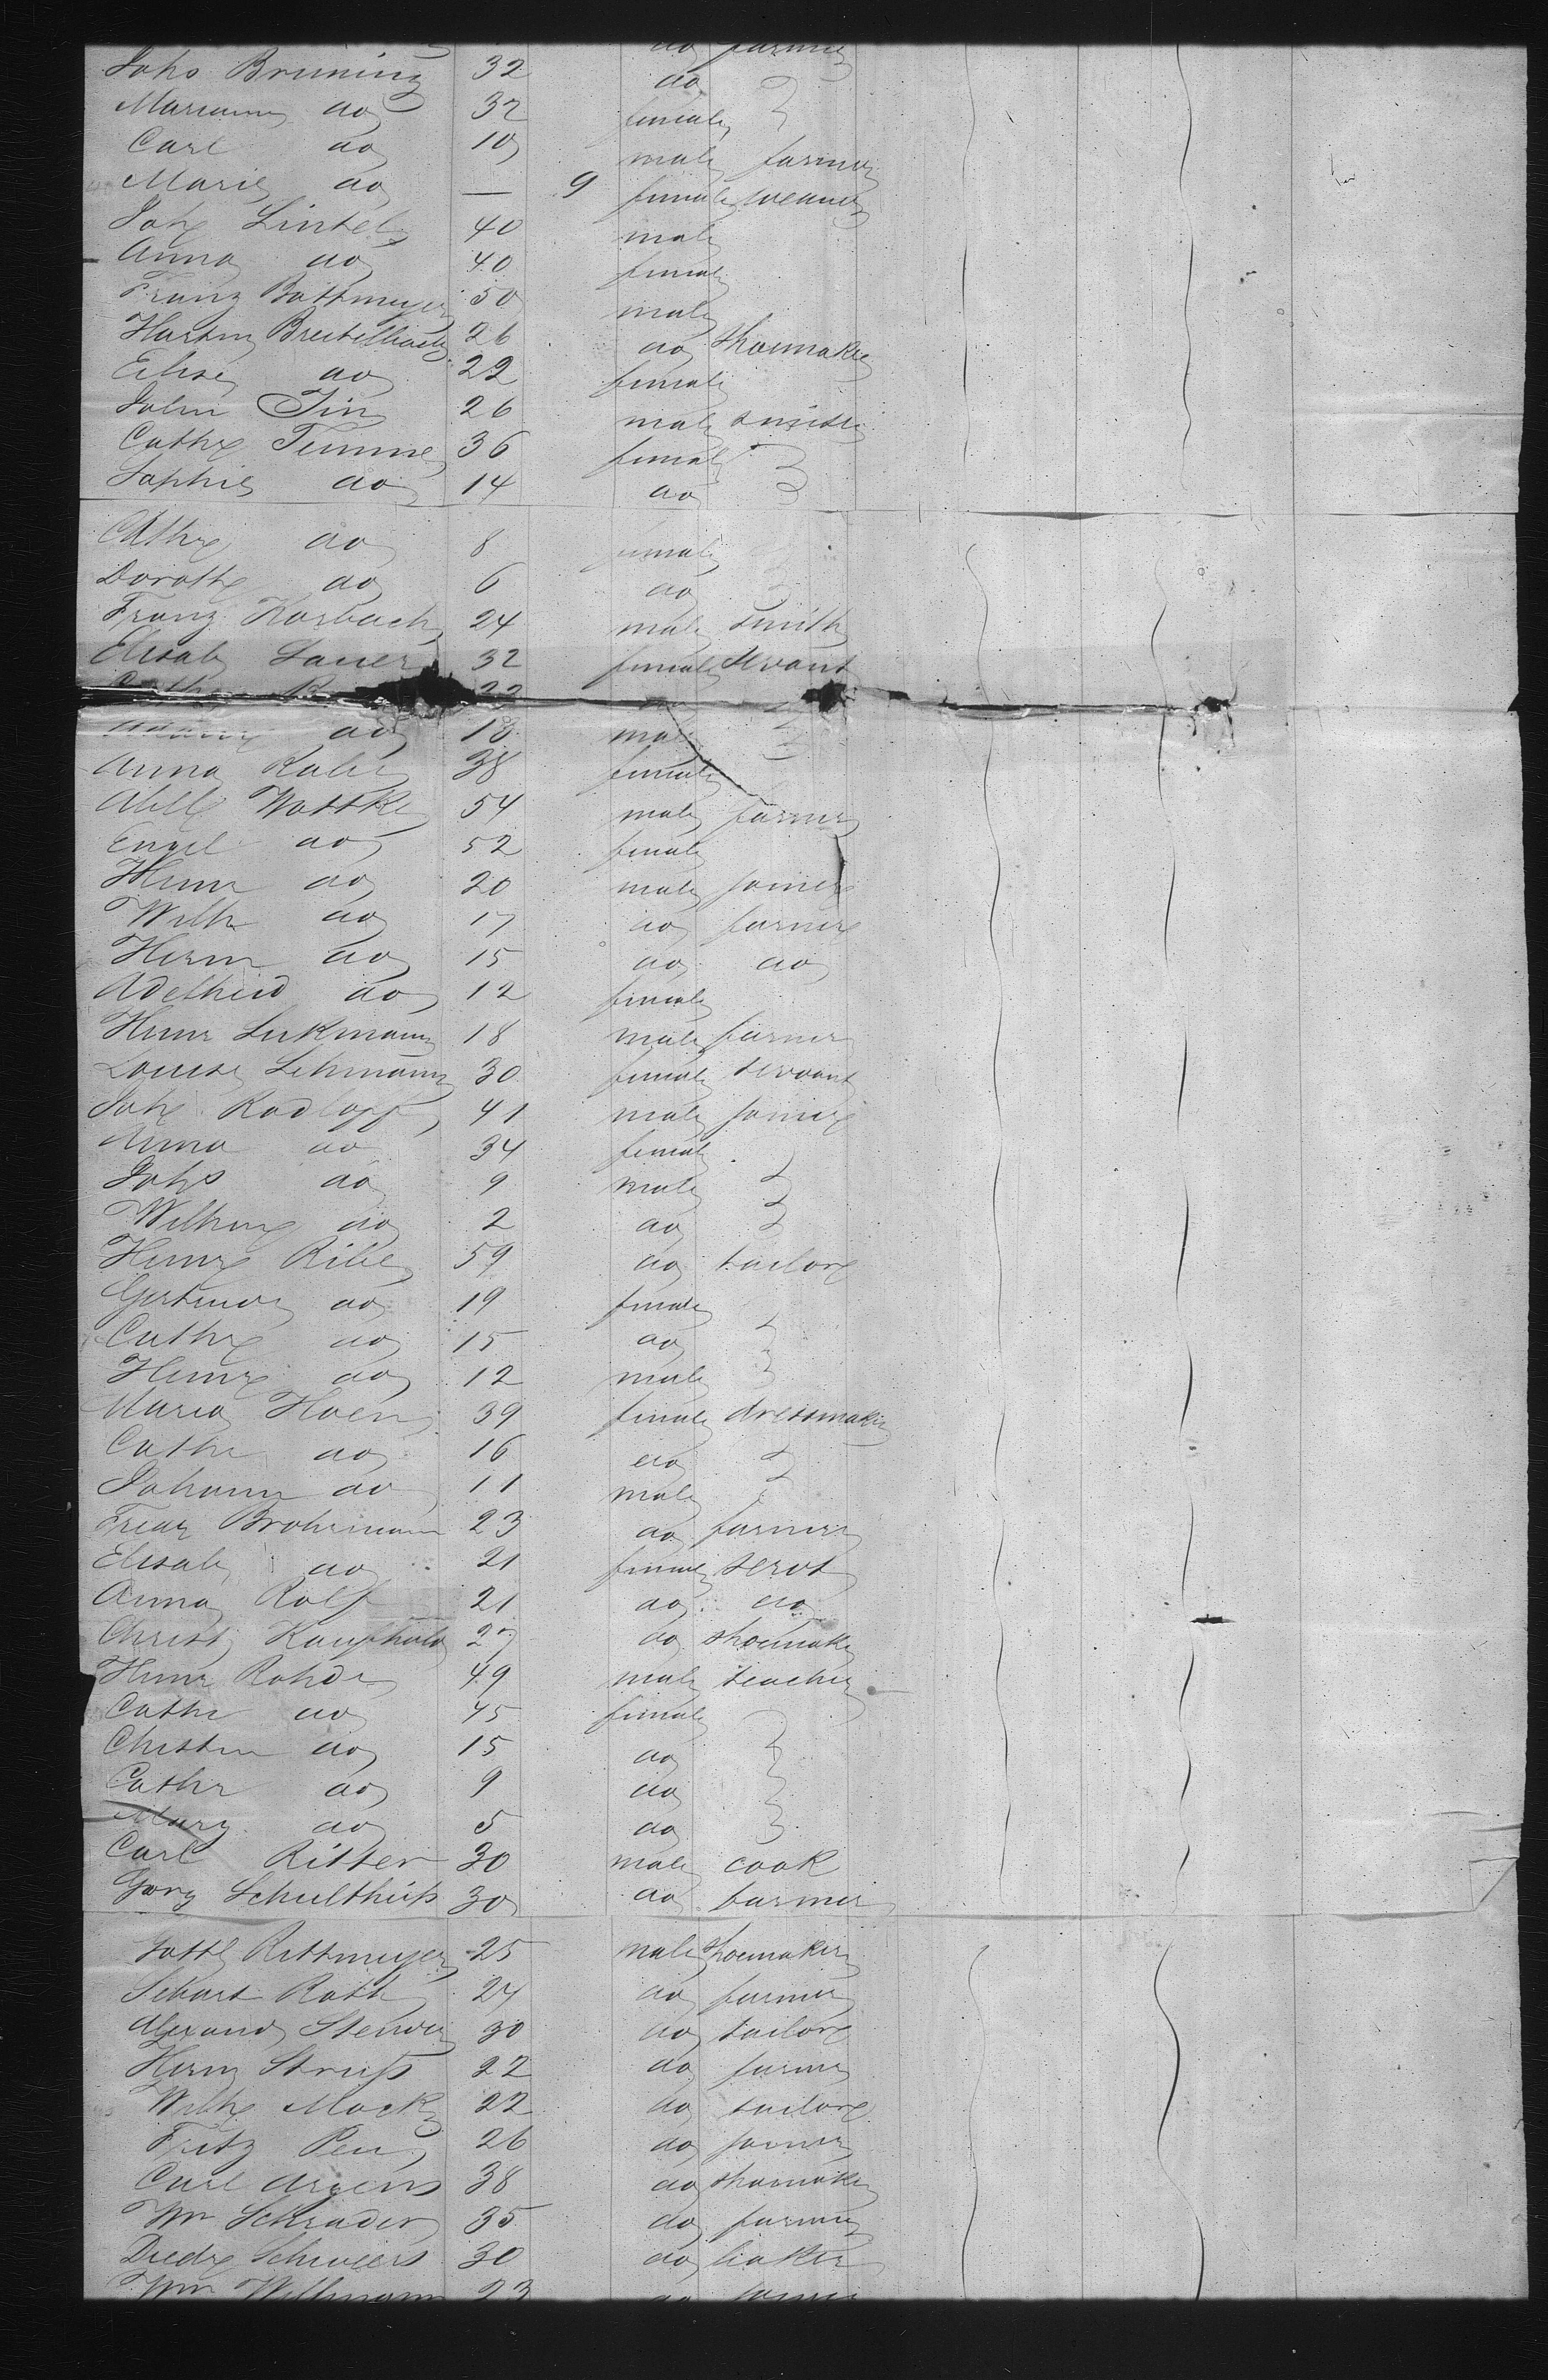 do farmer
Johs Bruning 32 do
Mariann do 32 female
Carl do 10 male farmer
Marie do — 9 female weaver
Joh Lintel 40 male
Anna do 40 female
Franz Bottmeyer 50 male
26 do shoemaker
Elise do 22 female
John 26 male smith
Cathe Timme 36 female
Sophie do 14 do
Cathe do 8 female
Dorothe do 6 do
Franz Korbach 24 male smith
Elisab Lauer 32 female servant
22
do 18 male
Anna Rabe 38 female
Wottke 54 male farmer
Engel do 52 female
Heinr do 20 male joiner
Wilh do 17 do farmer
Herm do 15 do do
Adelheid do 12 female
Heinr Lukmann 18 male farmer
Louise Lehmann 30 female servant
Joh Radloff 41 male joiner
Anna do 34 female
Johs do 9 male
Wilhm do 2 do
Heinr Ribe 59 do tailor
do 19 female
Cathe do 15 do
Heinr do 12 male
Maria Hoen 39 female dressmaker
Cathr do 16 do
Johann do 11 male
Friedr Brohrmann 23 do farmer
Elisab do 21 female servt
Anna Rolf 21 do do
Christ Kaufhold 27 do shoemaker
Heinr Rohde 49 male teacher
Cathr do 45 female
Christin do 15 do
Cathr do 9 do
Mary do 5 do
Carl Ritter 30 male cook
Georg Schultheiss 30 do farmer
Gottl Rittmeyer 25 male shoemaker
Sebast Roth 24 do farmer
Alexand 30 do tailor
Herm Struss 22 do farmer
Wilh Mack 22 do tailor
Fritz 26 do joiner
Carl Argens 38 do shoemaker
Wm Schrader 35 do farmer
Diedr Schweers 30 do baker
Wm Willmann 23 do